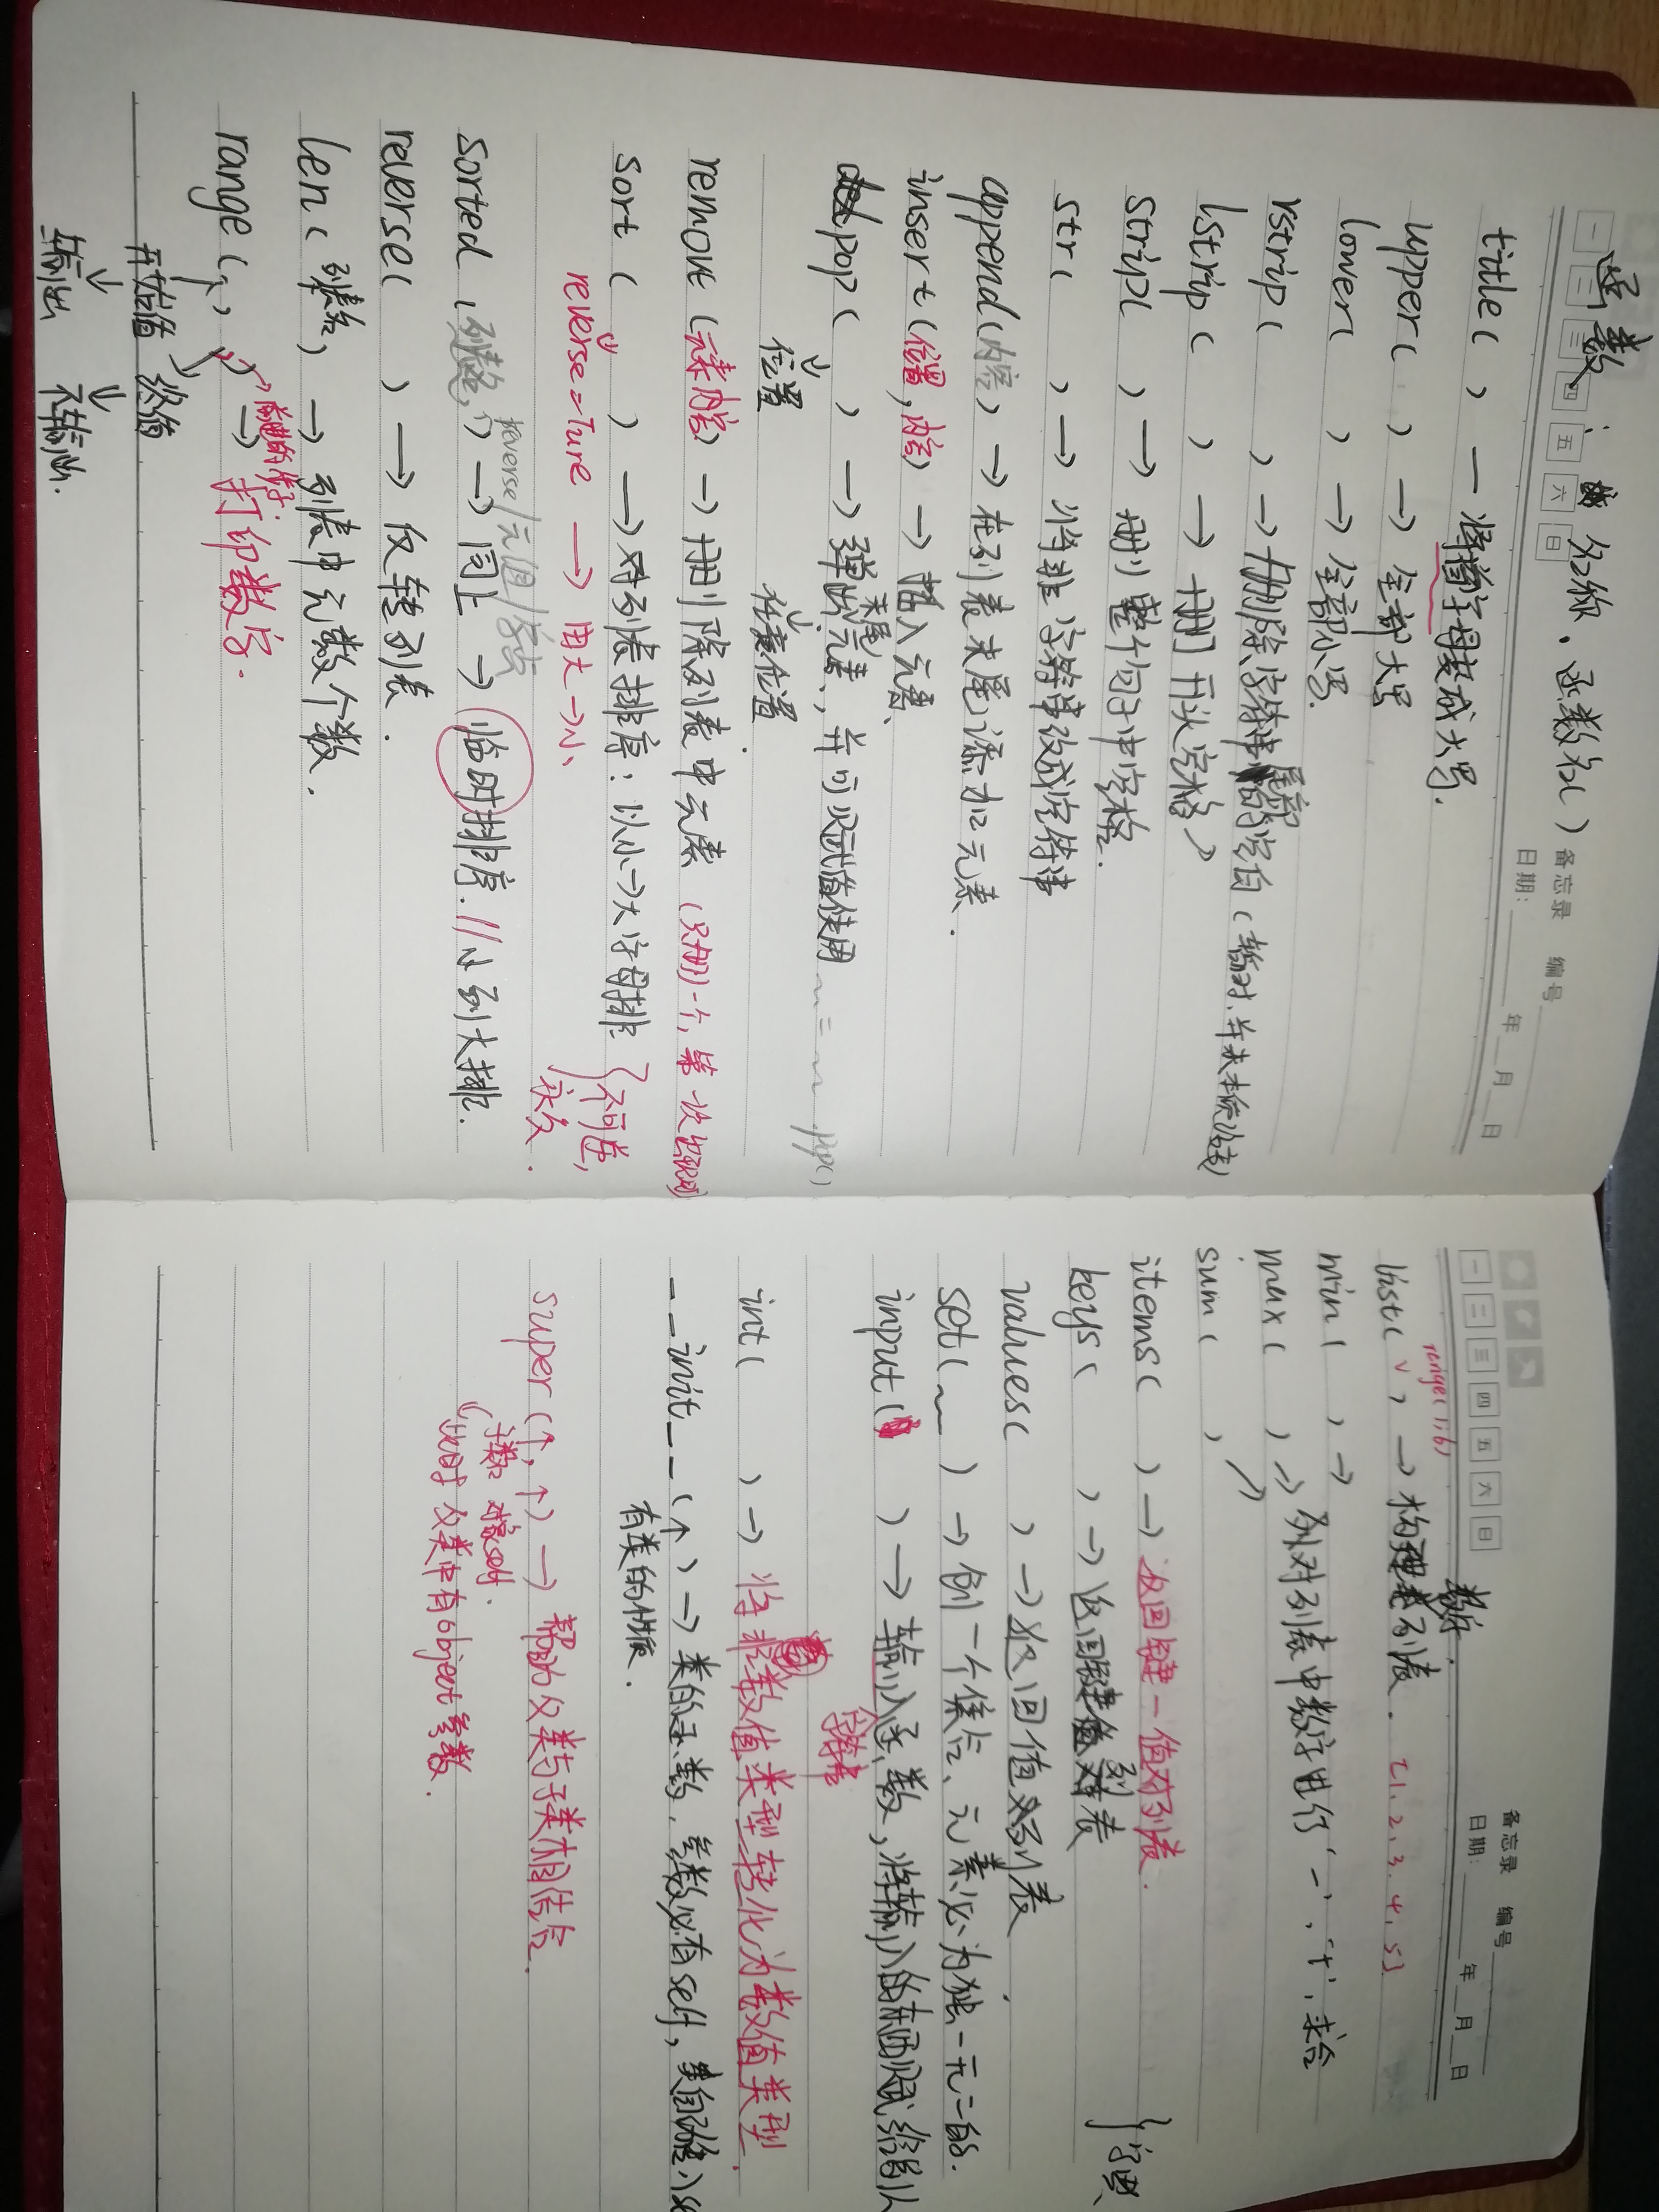 一 二 三 四 五 六 日
备忘录 编号
日期: 年 月 日
函数: 名称.函数名( )
title( ) — 将首字母变成大写.
upper( ) → 全部大写
lower( ) → 全部小写.
rstrip( ) → 删除字符串尾部的空白(暂时,并未本质改变)
lstrip( ) → 删开头空格
strip( ) → 删整个句子中空格.
str( ) → 将非字符串改成字符串
append(内容) → 在列表末尾添加元素.
insert(位置,内容) → 插入元素、
pop( ) → 弹出末尾元素,并可贝式值使用 ~ = ~ pop( )
位置 任意位置
remove(元素内容) → 删除列表中元素 (只删一个,第一次出现的)
sort( ) → 对列表排序:以小→大字母排 {不可逆,
reverse=Ture → 由大→小、 永久.
reverse/元组/字典
sorted(列表名, ) → 同上 → 临时排序.//小到大排.
reverse( ) → 反转列表.
len(列表名) → 列表中元数个数.
range( , ) → 打印数字.
开始值 终值
输出 不输出.
一 二 三 四 五 六 日
备忘录 编号
日期: 年 月 日
range(1,6)
list( ) → 构建数字列表. [1.2.3.4.5]
min( ) →
max( ) → 对列表中数字进行‘-’.‘+’.求合
sum( )
items( ) → 返回键—值对列表.
keys( ) → 返回键列表 } 字典、
values( ) → 返回值列表
set( ~ ) → 创一个集合、元素必为独一无二的.
input( ) → 输入函数,将输入的东西赋给别人
字符串
int( ) → 将非数值类型转化为数值类型.
__init__(↑) → 类的函数.参数必有self,
有类的性质.
super(↑,↑) → 帮助父类与子类相结合.
子类名 对象self.
此时父类中有object参数.